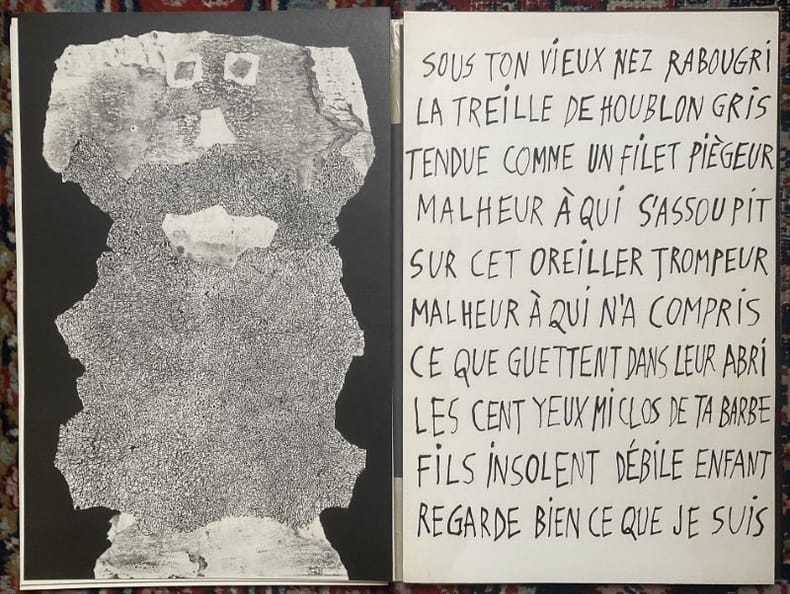 SOUS TON VIEUX NEZ RABOUGRI
LA TREILLE DE HOUBLON GRIS
TENDUE COMME UN FILET PIÈGEUR
MALHEUR À QUI S'ASSOUPIT
SUR CET OREILLER TROMPEUR
MALHEUR À QUI N'A COMPRIS
CE QUE GUETTENT DANS LEUR ABRI
LES CENT YEUX MI CLOS DE TA BARBE
FILS INSOLENT DÉBILE ENFANT
REGARDE BIEN CE QUE JE SUIS